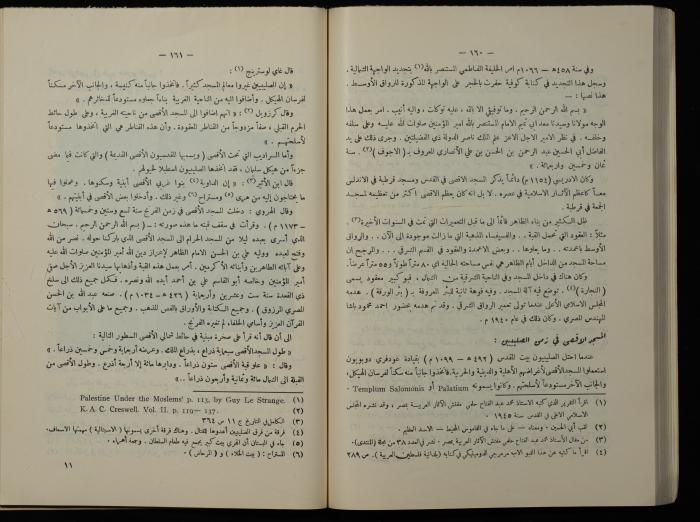 — ١٦٠ —
وفي سنة ٤٥٨ هـ — ١٠٦٦ م امر الخليفة الفاطمي المستنصر بالله (١) بتجديد الواجهة الشمالية .
وسجل هذا التجديد في كتابة كوفية حفرت بالحجر على الواجهة المذكورة للرواق الأوسط .
هذا نصها : —
« بسم الله الرحمن الرحيم . وما توفيقي الا بالله ، عليه توكلت ، واليه أنيب . امر بعمل هذا
الوجه مولانا وسيدنا معد ابي تميم الامام المستنصر بالله امير المؤمنين صلوات الله عليه وعلى سلفه
وخلفه . في نظر الامير الاجل الاعز علم الملك ناصر الدولة ذي الفضيلتين . وجرى ذلك على يد
الفاضل أبي الحسين عبد الرحمن بن الحسن بن علي الأنصاري المعروف بـ (الاجوف) (٢) . سنة
ثمان وخمسين واربعمائة . »
وكان الادريسي (١١٥٤ م) دائماً يذكر المسجد الاقصى في القدس ومسجد قرطبة في الاندلس
معاً كأعظم الآثار الاسلامية في عصره . لا بل انه كان يعظم الاقصى اكثر من تعظيمه لمسجد
الجمعة في قرطبة .
ظل الكثير من بناء الظاهر قائماً الى ما قبل التعميرات التي تمت في السنوات الأخيرة (٣) .
مثلاً : العقود التي تحمل القبة .. والفسيفساء المذهبة التي ما زالت موجودة الى الآن .. والرواق
الأوسط باعمدته .. وما يعلوها .. وبعض الاعمدة والعقود في القسم الشرقي ... والمرجح ان
مساحة المسجد من الداخل أيام الظاهر هي نفس مساحته الحالية اي ٨٠ متراً طولاً و ٥٥ متراً عرضاً .
وكان هناك في داخل المسجد وفي الناحية الشرقية من الشمال ، قبو كبير معقود يسمى
(النجارة) (٤) . توضع فيه آلة المسجد . وفيه فوهة ثانية للبئر المعروفة بـ (بئر الورقة) . هدمه
المجلس الاسلامي الأعلى عندما تولى تعمير الرواق الشرقي . وقد تم هدمه بحضور احمد محمود باشا
المهندس المصري . وكان ذلك في عام ١٩٤٠ م .
المسجد الاقصى في زمن الصليبيين :
عندما احتل الصليبيون بيت المقدس (٤٩٢ هـ — ١٠٩٩ م) بقيادة غودفري دوبويون
استعملوا المسجد الأقصى لأغراضهم الأهلية والدينية والحربية . فاتخذوا جانباً منه سكناً لفرسان الهيكل ،
والجانب الآخر مستودعاً لأسلحتهم . وكانوا يسمونه Palatium أو Templum Salomonis .
(١) اقرأ التقرير الذي كتبه الاستاذ محمد عبد الفتاح حلمي مفتش الآثار العربية بمصر ، وقد نشره المجلس
الاسلامي الاعلى في القدس سنة ١٩٤٥ .
(٣) من مقال الأستاذ محمد عبد الفتاح حلمي مفتش الآثار العربية بمصر . نشر في العدد ٣٨ من مجلة (المنتدى) .
(٤) اقرأ ما كتبه عن هذا القبو الاب مرمرجي الدومنيكي في كتابه (بلدانية فلسطين العربية) . ص ٢٨٩
— ١٦١ —
قال غاي لوسترينج (١) :
« إن الصليبيين غيروا معالم المسجد كثيراً . فاتخذوا جانباً منه كنيسة ، والجانب الآخر مسكناً
لفرسان الهيكل . وأضافوا اليه من الناحية الغربية بناءً جعلوه مستودعاً لذخائرهم . »
وقال كرزويل (٢) : « انهم اضافوا الى المسجد الأقصى من ناحيته الغربية ، وعلى طول حائط
الحرم القبلي ، صفاً مزدوجاً من القناطر المعقودة . وأن هذه القناطر هي التي اتخذوها مستودعاً
لأسلحتهم . »
وأما السراديب التي تحت الأقصى (ويسميها المقدسيون الأقصى القديمة) والتي كانت فيما مضى
جزءاً من هيكل سليمان ، فقد اتخذها الصليبيون اسطبلا لخيولهم .
قال ابن الأثير (٣) : « إن الداوية (٤) بنوا غربي الأقصى أبنية وسكنوها ، وعملوا فيها
ما يحتاجون إليه من هري (٥) ومستراح (٦) وغير ذلك . وأدخلوا بعض الأقصى في أبنيتهم . »
وقال الهروي : دخلت المسجد الأقصى في زمن الفرنج سنة تسع وستين وخمسمائة (٥٦٩ هـ
— ١١٧٣ م) . وقرأت في سقف قبته ما هذه صورته : « بسم الله الرحمن الرحيم . سبحان
الذي أسرى بعبده ليلا من المسجد الحرام الى المسجد الأقصى الذي باركنا حوله . نصر من الله
وفتح لعبده ووليه علي بن الحسن الامام الظاهر لاعزاز دين الله أمير المؤمنين صلوات الله عليه
وعلى آبائه الطاهرين وأبنائه الأكرمين . أمر بعمل هذه القبة وأذهابها سيدنا العزيز الأجل صفي
أمير المؤمنين وخالصه أبو القاسم علي بن أحمد أيده الله ونصره . فكمل جميع ذلك الى سلخ
ذي القعدة سنة ست وعشرين وأربعماية (٤٢٦ هـ — ١٠٣٤ م) . صنعه عبد الله بن الحسن
المصري المزوق ) . وجميع الكتابة والأوراق بالفص المذهب . وجميع ما على الأبواب من آيات
القرآن العزيز وأسامي الخلفاء لم تغيره الفرنج .
الى ان قال أنه قرأ على صخرة مبنية في حائط شمالي الأقصى السطور التالية :
« طول المسجد الأقصى سبعماية ذراع ، بذراع الملك . وعرضه أربعماية وخمس وخمسين ذراعاً . »
وقال : « علو قبة الأقصى ستون ذراعاً . ودايرها مائة إلا أربعة أذرع . وطول الأقصى من
القبلة الى الشمال مائة وثمانية وأربعون ذراعاً .. »
(١) Palestine Under the Moslems' p. 113, by Guy Le Strange.
(٢) K. A. C. Creswell. Vol. II. p. 119—137.
(٣) الكامل في التاريخ ج ١١ ص ٣٦٤
(٤) فرقة من فرق الصليبيين أعدوها للقتال . وهناك فرقة أخرى يسمونها (الاسبتالية) مهمتها الاسعاف .
(٥) جاء في البستان أن الهري بيت كبير يجمع فيه طعام السلطان . وجمعه أهراء .
(٦) المستراح : (بيت الخلاء) و (المرحاض) .
١١